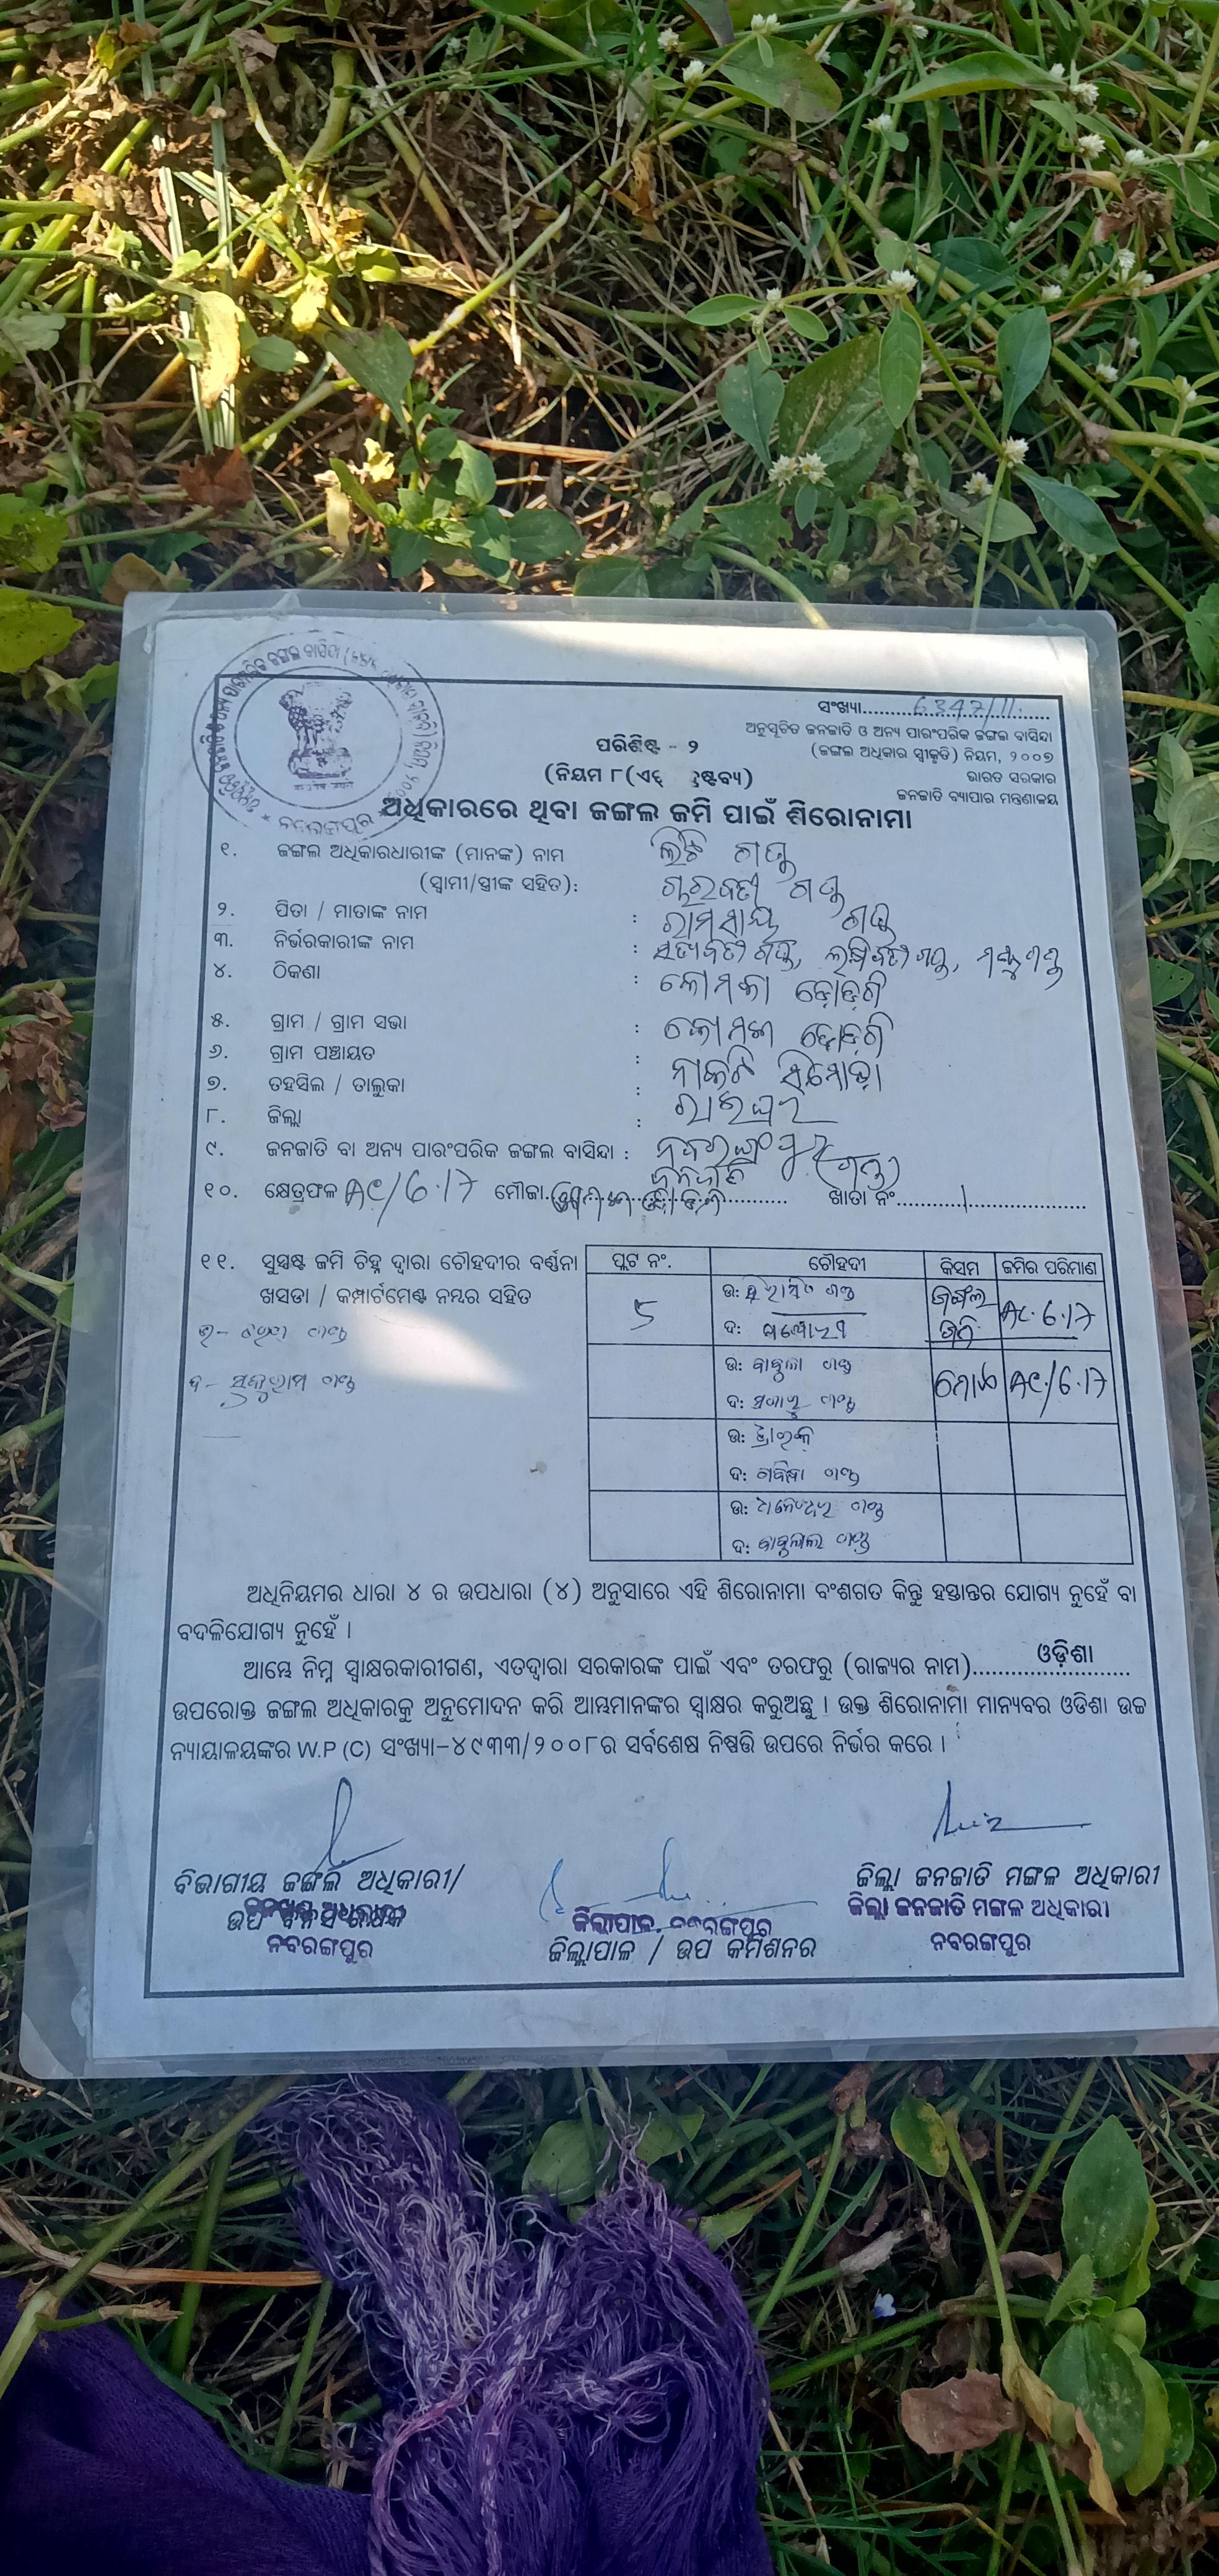 ସଂଖ୍ୟା.......6347/11.......
ଅନୁସୂଚିତ ଜନଜାତି ଓ ଅନ୍ୟ ପାରଂପରିକ ଜଙ୍ଗଲ ବାସିନ୍ଦା
(ଜଙ୍ଗଲ ଅଧିକାର ସ୍ୱୀକୃତି) ନିୟମ, ୨୦୦୭
ଭାରତ ସରକାର
ଜନଜାତି ବ୍ୟାପାର ମନ୍ତ୍ରଣାଳୟ
ପରିଶିଷ୍ଟ - ୨
(ନିୟମ ୮(ଏଚ୍ ଦ୍ରଷ୍ଟବ୍ୟ)
ନବରଙ୍ଗପୁର
ଅଧିକାରରେ ଥିବା ଜଙ୍ଗଲ ଜମି ପାଇଁ ଶିରୋନାମା
୧. ଜଙ୍ଗଲ ଅଧିକାରଧାରୀଙ୍କ (ମାନଙ୍କ) ନାମ ଲିଟି ଗଣ୍ଡ
(ସ୍ୱାମୀ/ସ୍ତ୍ରୀଙ୍କ ସହିତ): ଗଣ୍ଡ
୨. ପିତା / ମାତାଙ୍କ ନାମ : ରାମସାୟ ଗଣ୍ଡ
୩. ନିର୍ଭରକାରୀଙ୍କ ନାମ : ସତ୍ୟବତୀ ଗଣ୍ଡ, ଗଣ୍ଡ, ଗଣ୍ଡ
୪. ଠିକଣା :
୫. ଗ୍ରାମ / ଗ୍ରାମ ସଭା :
୬. ଗ୍ରାମ ପଞ୍ଚାୟତ : ନାକଟି ସିମୋଡ଼ା
୭. ତହସିଲ / ତାଲୁକା : ରାଇଘର
୮. ଜିଲ୍ଲା : ନବରଙ୍ଗପୁର
୯. ଜନଜାତି ବା ଅନ୍ୟ ପାରଂପରିକ ଜଙ୍ଗଲ ବାସିନ୍ଦା : ଜନଜାତି (ଗଣ୍ଡ)
୧୦. କ୍ଷେତ୍ରଫଳ AC/6.17 ମୌଜା.............. ଖାତା ନଂ.......1.......
୧୧. ସୁସ୍ପଷ୍ଟ ଜମି ଚିହ୍ନ ଦ୍ୱାରା ଚୌହଦୀର ବର୍ଣ୍ଣନା
ଖସଡା / କମ୍ପାର୍ଟମେଣ୍ଟ ନମ୍ବର ସହିତ
ଉ- ଗଣ୍ଡ
ଦ- ସୁକୁରାମ ଗଣ୍ଡ
ପ୍ଲଟ ନଂ. ଚୌହଦୀ କିସମ ଜମିର ପରିମାଣ
5 ଉ: ଗଣ୍ଡ ଜଙ୍ଗଲ ଜମି AC.6.17
ଦ:
ଉ: ଗଣ୍ଡ ମୋଟ AC./6.17
ଦ: ଗଣ୍ଡ
ଉ:
ଦ: ଗଣ୍ଡ
ଉ: ଗଣ୍ଡ
ଦ: ବାବୁଲାଲ ଗଣ୍ଡ
ଅଧିନିୟମର ଧାରା ୪ ର ଉପଧାରା (୪) ଅନୁସାରେ ଏହି ଶିରୋନାମା ବଂଶଗତ କିନ୍ତୁ ହସ୍ତାନ୍ତର ଯୋଗ୍ୟ ନୁହେଁ ବା
ବଦଳିଯୋଗ୍ୟ ନୁହେଁ ।
ଆମ୍ଭେ ନିମ୍ନ ସ୍ୱାକ୍ଷରକାରୀଗଣ, ଏତଦ୍ୱାରା ସରକାରଙ୍କ ପାଇଁ ଏବଂ ତରଫରୁ (ରାଜ୍ୟର ନାମ).......ଓଡ଼ିଶା.......
ଉପରୋକ୍ତ ଜଙ୍ଗଲ ଅଧିକାରକୁ ଅନୁମୋଦନ କରି ଆମ୍ଭମାନଙ୍କର ସ୍ୱାକ୍ଷର କରୁଅଛୁ । ଉକ୍ତ ଶିରୋନାମା ମାନ୍ୟବର ଓଡିଶା ଉଚ୍ଚ
ନ୍ୟାୟାଳୟଙ୍କର W.P (C) ସଂଖ୍ୟା-୪୯୩୩/୨୦୦୮ର ସର୍ବଶେଷ ନିଷ୍ପତ୍ତି ଉପରେ ନିର୍ଭର କରେ ।
ବିଭାଗୀୟ ଜଙ୍ଗଲ ଅଧିକାରୀ/
ଉପ ବନସଂରକ୍ଷକ
ନବରଙ୍ଗପୁର
ଜିଲ୍ଲାପାଳ, ନବରଙ୍ଗପୁର
ଜିଲ୍ଲାପାଳ / ଉପ କମିଶନର
ଜିଲ୍ଲା ଜନଜାତି ମଙ୍ଗଳ ଅଧିକାରୀ
ଜିଲ୍ଲା ଜନଜାତି ମଙ୍ଗଳ ଅଧିକାରୀ
ନବରଙ୍ଗପୁର